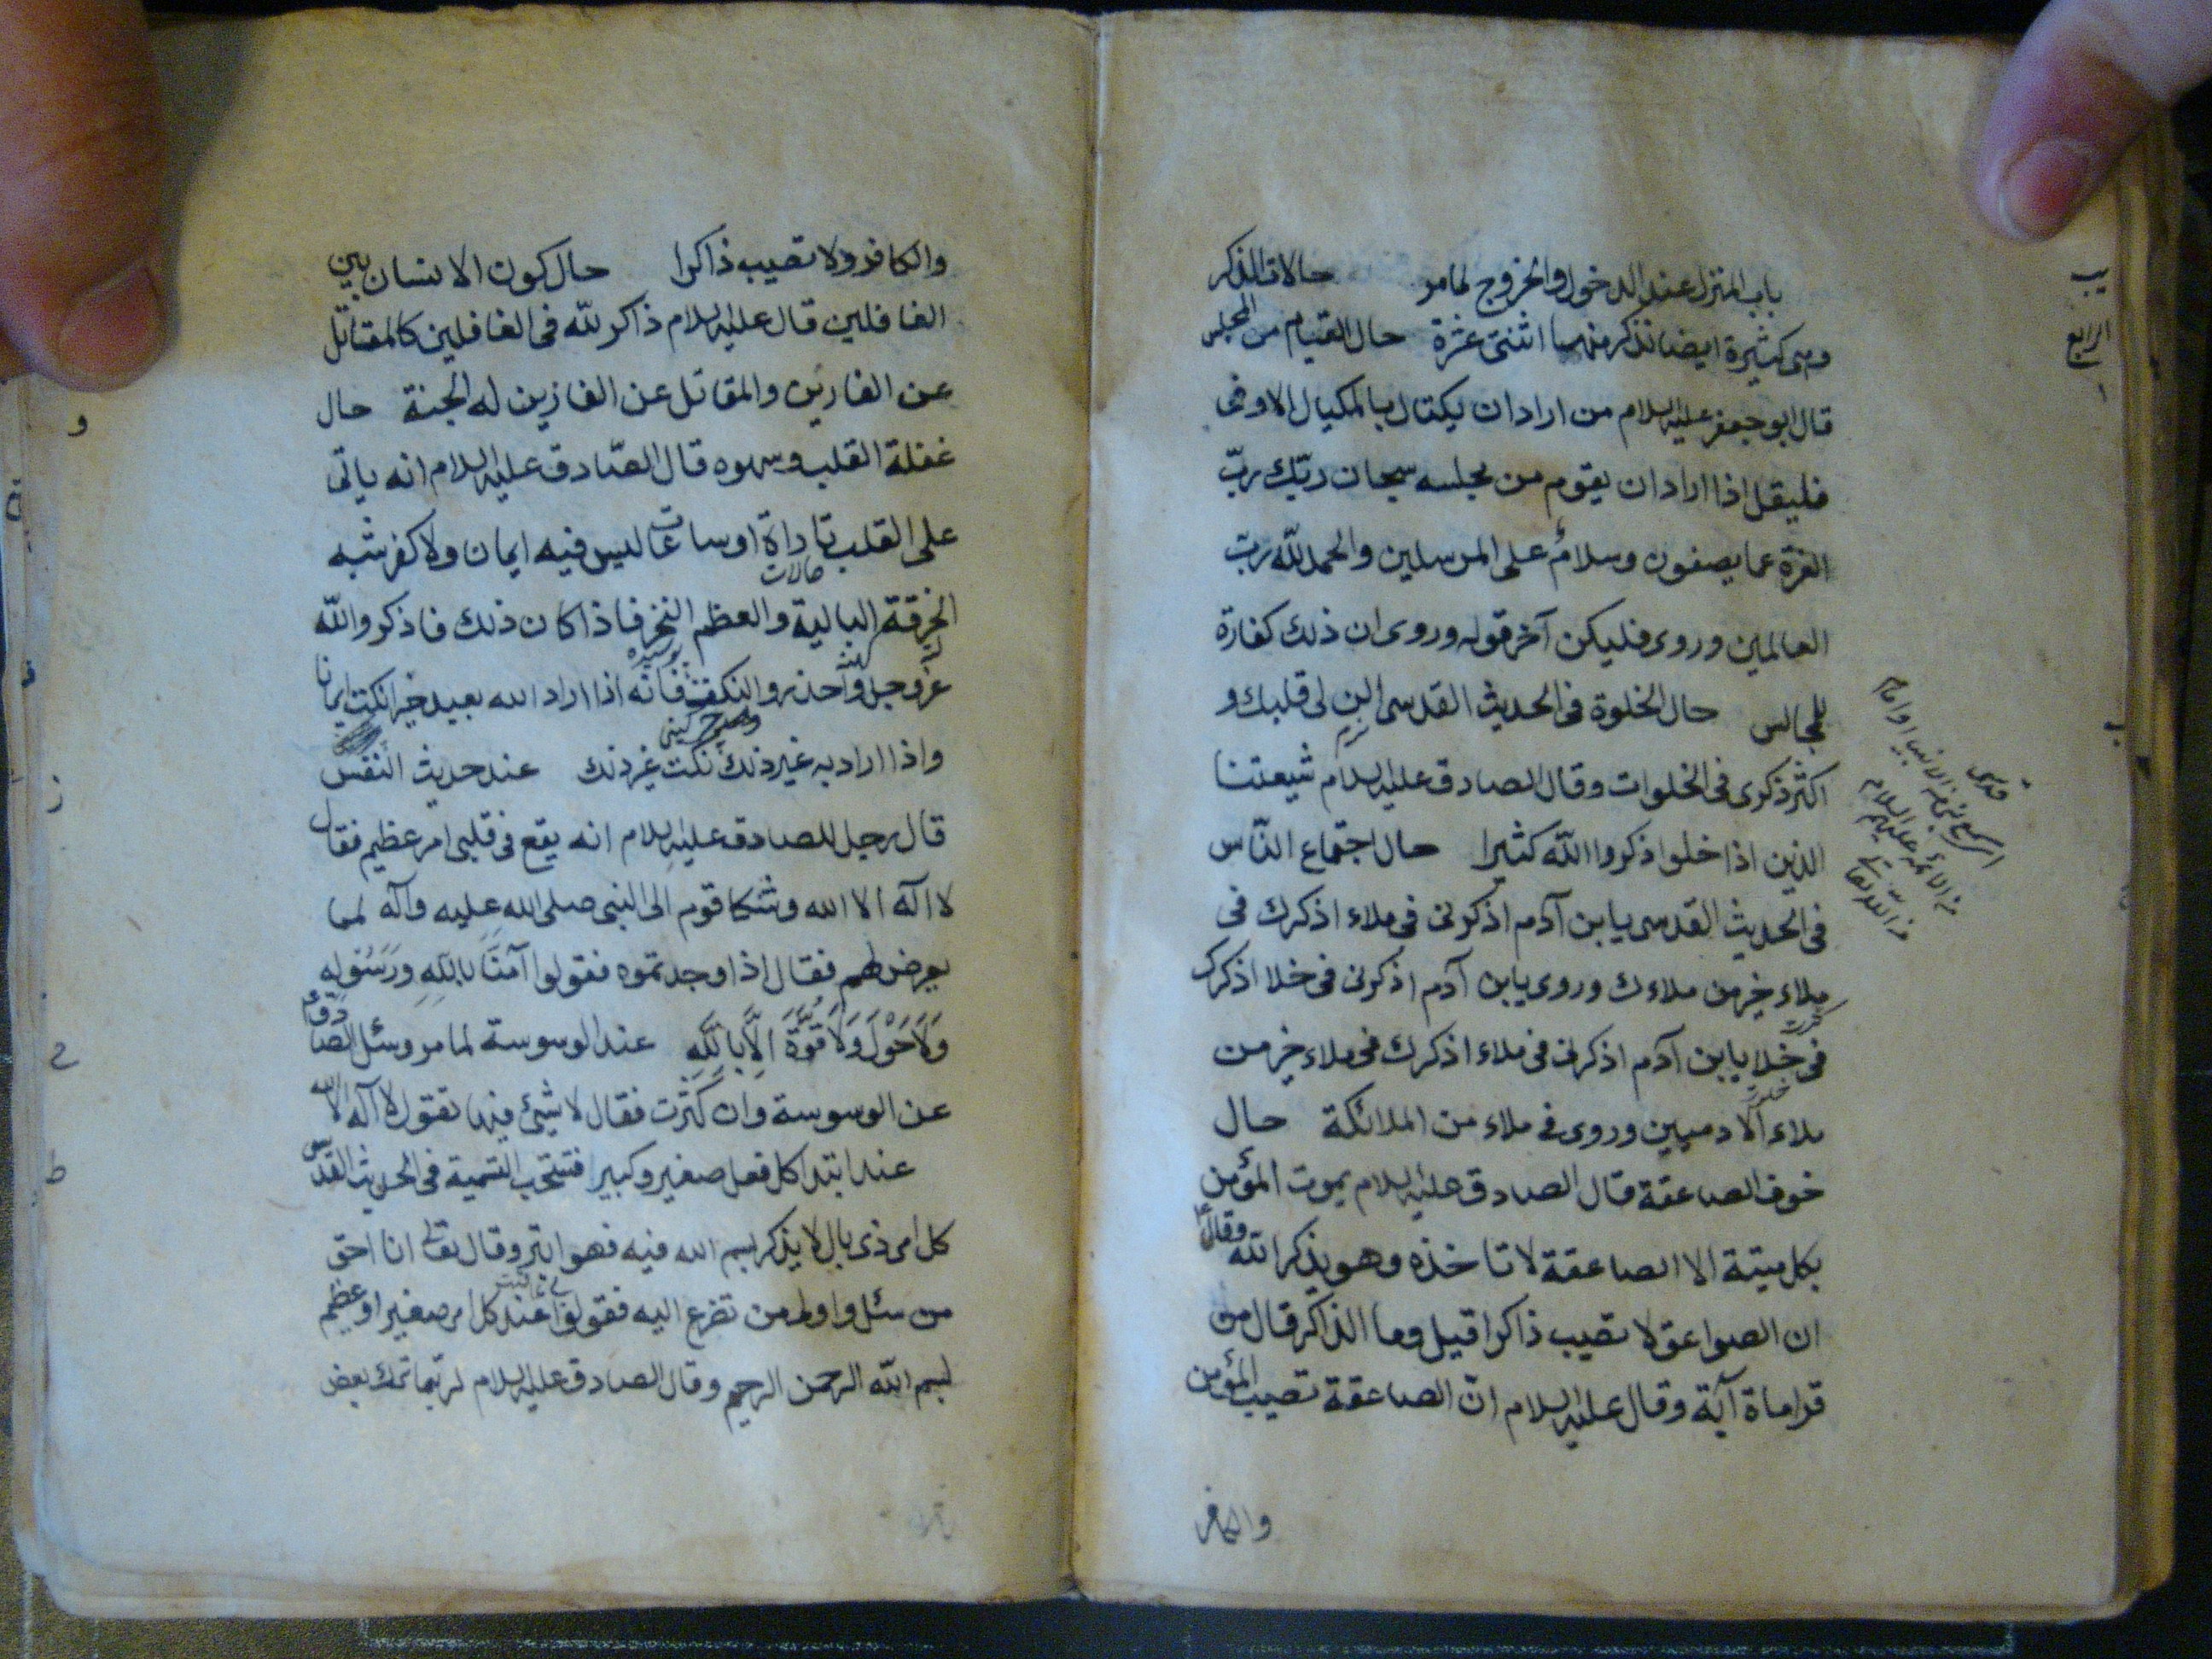 باب المنزل عند الدخول والخروج لما مر حالات الذكر
وهى كثيرة ايضا نذكر منها اثنتى عشرة حال القيام من المجلس
قال ابو جعفر عليه السلام من اراد ان يكتال بالمكيال الاوفى
فليقل اذا اراد ان يقوم من مجلسه سبحان ربك رب
العزة عما يصفون وسلام على المرسلين والحمد لله رب
العالمين وروى فليكن آخر قوله وروى ان ذلك كفارة
للمجالس حال الخلوة فى الحديث القدسى الن لى قلبك و
اكثر ذكرى فى الخلوات وقال الصادق عليه السلام شيعتنا
الذين اذا خلوا ذكروا الله كثيرا حال اجتماع الناس
فى الحديث القدسى يابن آدم اذكرنى فى ملاء اذكرك فى
ملاء خير من ملاءك وروى يابن آدم اذكرنى فى خلا اذكرك
فى خلا يابن آدم اذكرنى فى ملاء اذكرك فى ملاء خير من
ملاء الادميين وروى فى ملاء من الملائكة حال
خوف الصاعقة قال الصادق عليه السلام يموت المؤمن
بكل ميتة الا الصاعقة لا تاخذه وهو يذكر الله وقال ع
ان الصواعق لا تصيب ذاكرا قيل وما الذاكر قال من
قرا ماة آية وقال عليه السلام ان الصاعقة تصيب المؤمن
والكافر
يب
الرابع
ا
ب
والكافر ولا تصيب ذاكرا حال كون الانسان بين
الغافلين قال عليه السلام ذاكر لله فى الغافلين كالمقاتل
عن الفارين والمقاتل عن الفارين له الجنة حال
غفلة القلب وسهوه قال الصادق عليه السلام انه ياتى
على القلب تاراة او ساعات ليس فيه ايمان ولا كفر شبه
حالات
الخرقة البالية والعظم النخر فاذا كان ذلك فاذكروا الله
پوسيده
عز وجل واحذروا النكت فانه اذا اراد الله بعبد خيرا نكت ايمانا
واذا اراد به غير ذلك نكت غير ذلك عند حديث النفس
قال رجل للصادق عليه السلام انه يقع فى قلبى امر عظيم فقال
لا اله الا الله وشكا قوم الى النبى صلى الله عليه وآله لما
يعرض لهم فقال اذا وجدتموه فقولوا آمنا بالله ورسوله
ولا حول ولا قوة الا بالله عند الوسوسة لما مر وسئل الصادق ع
عن الوسوسة وان كثرت فقال لا شيئ فيها تقول لا اله الا الله
عند ابتدا كل فعل صغير وكبير فتستحب التسمية فى الحديث القدسى
كل امر ذى بال لا يذكر بسم الله فيه فهو ابتر وقال تعالى انا احق
من سئل واولى من تضرع اليه فقولوا عند كل امر صغير او عظيم
بسم الله الرحمن الرحيم وقال الصادق عليه السلام لربما ترك بعض
و
ز
ح
ط